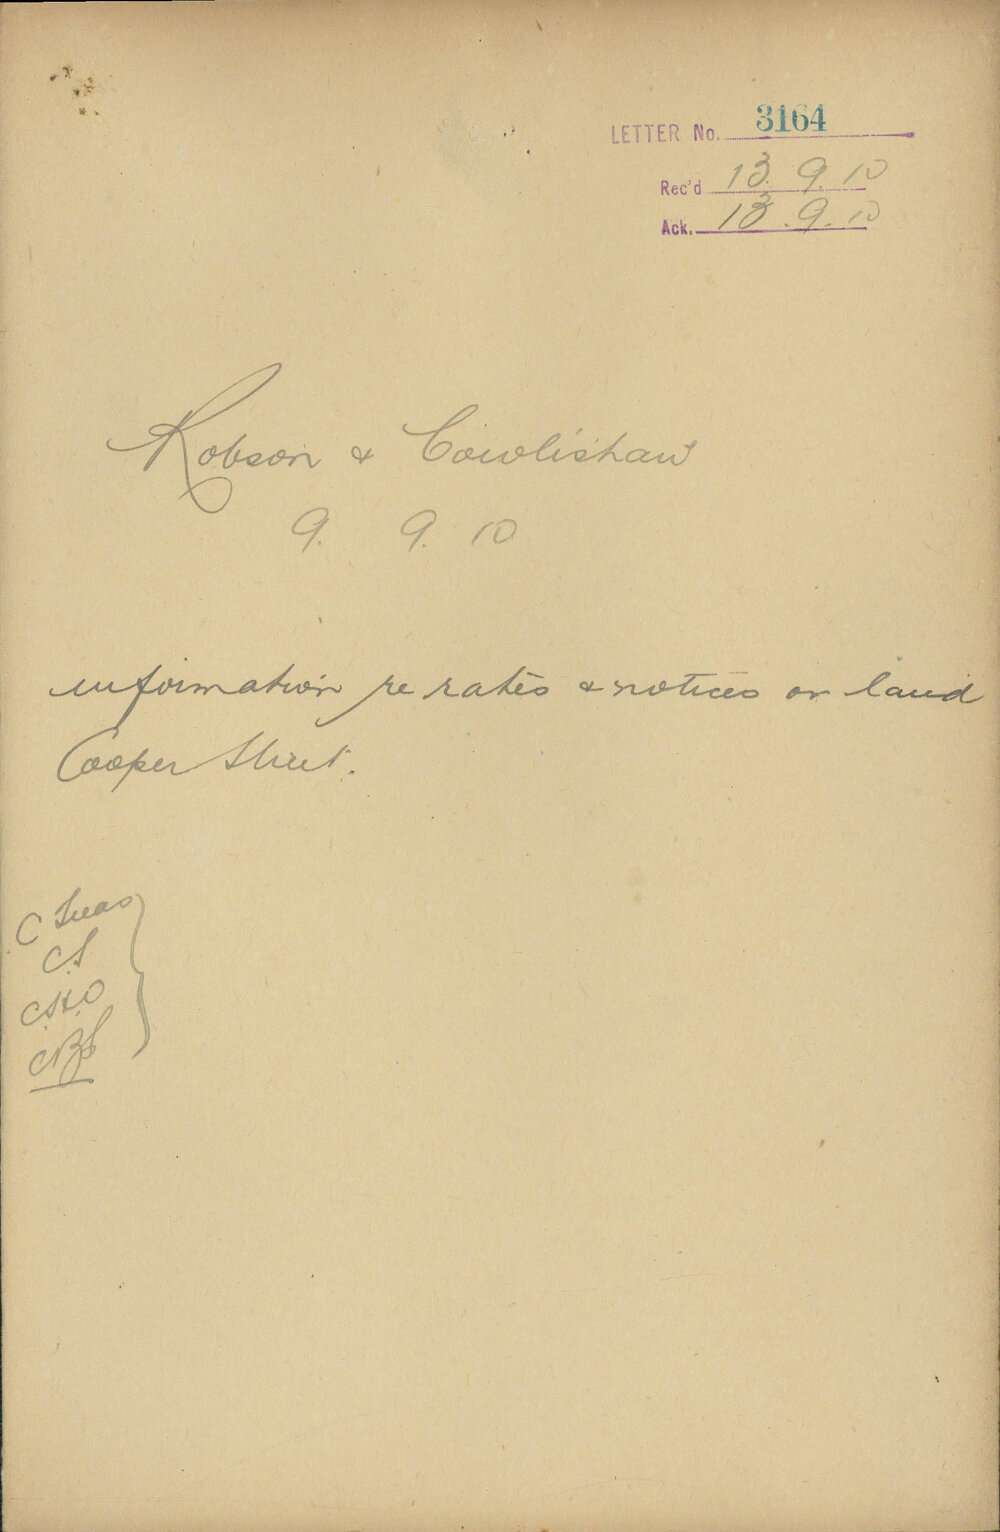 LETTER No. 3164
Rec'd 13. 9. 10
Ack. 13. 9. 10
Robson & Cowlishaw
9. 9. 10
information re rates & notices on land
Cooper Street.
C Treas
C.S
C.H.O
CBS